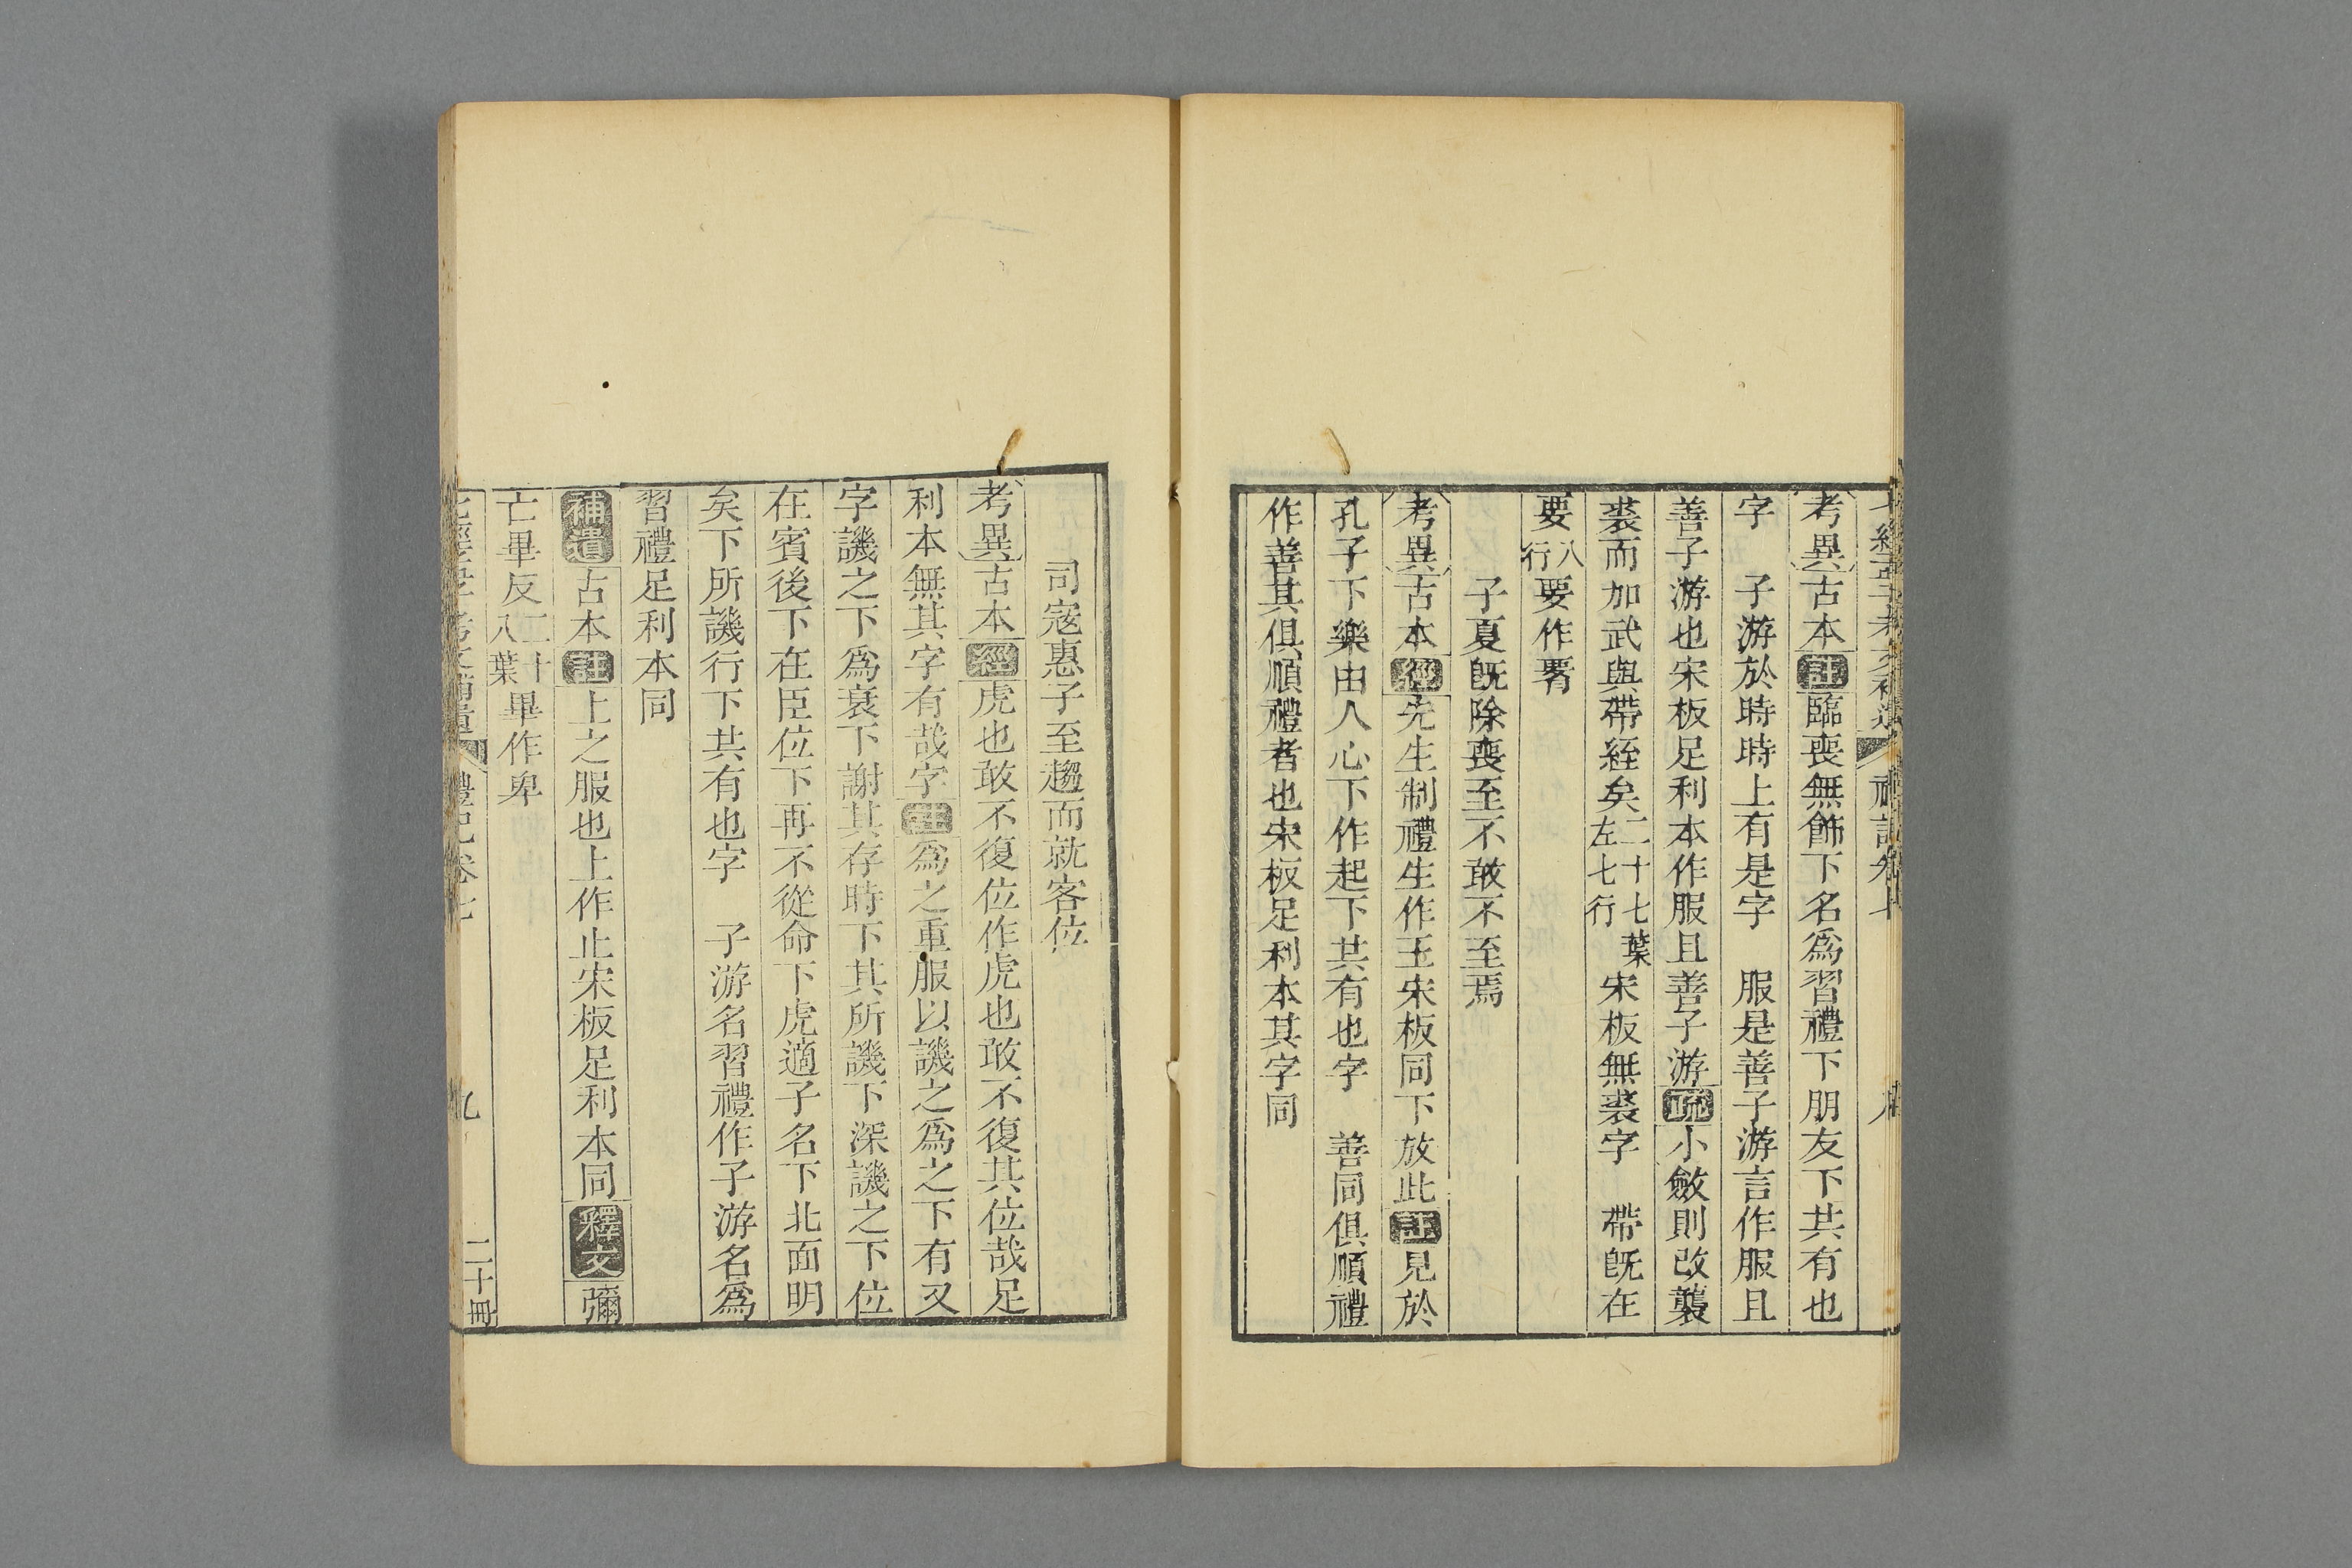 考異古本註臨喪無飾下名爲習禮下朋友下共有也
字　子游於時時上有是字　服是善子游言作服且
善子游也宋板足利本作服且善子游疏小斂則改襲
裘而加武與帶絰矣二十七葉左七行宋板無裘字　帶旣在
要八行要作署
子夏旣除喪至不敢不至焉
考異古本經先生制禮生作王宋板同下放此註見於
孔子下樂由人心下作起下共有也字　善同俱順禮
作善其俱順禮者也宋板足利本其字同
司寇惠子至趨而就客位
考異古本經虎也敢不復位作虎也敢不復其位哉足
利本無其字有哉字註爲之重服以譏之爲之下有又
字譏之下爲衰下謝其存時下其所譏下深譏之下位
在賓後下在臣位下再不從命下虎適子名下北面明
矣下所譏行下共有也字　子游名習禮作子游名爲
習禮足利本同
補遺古本註上之服也上作止宋板足利本同釋文彌
亡畢反二十八葉畢作卑
七經孟子考文補遺　禮記卷七　九　二十冊